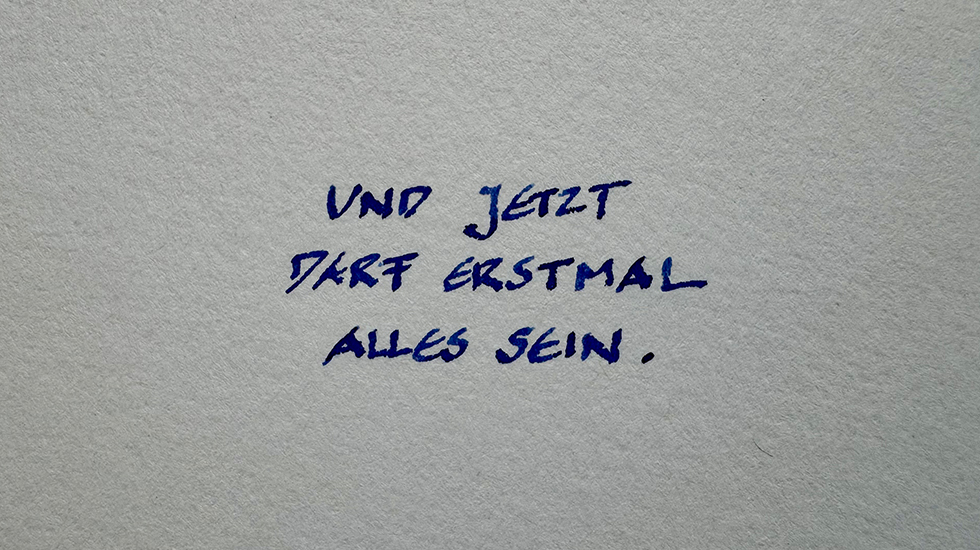 UND JETZT
DARF ERSTMAL
ALLES SEIN.